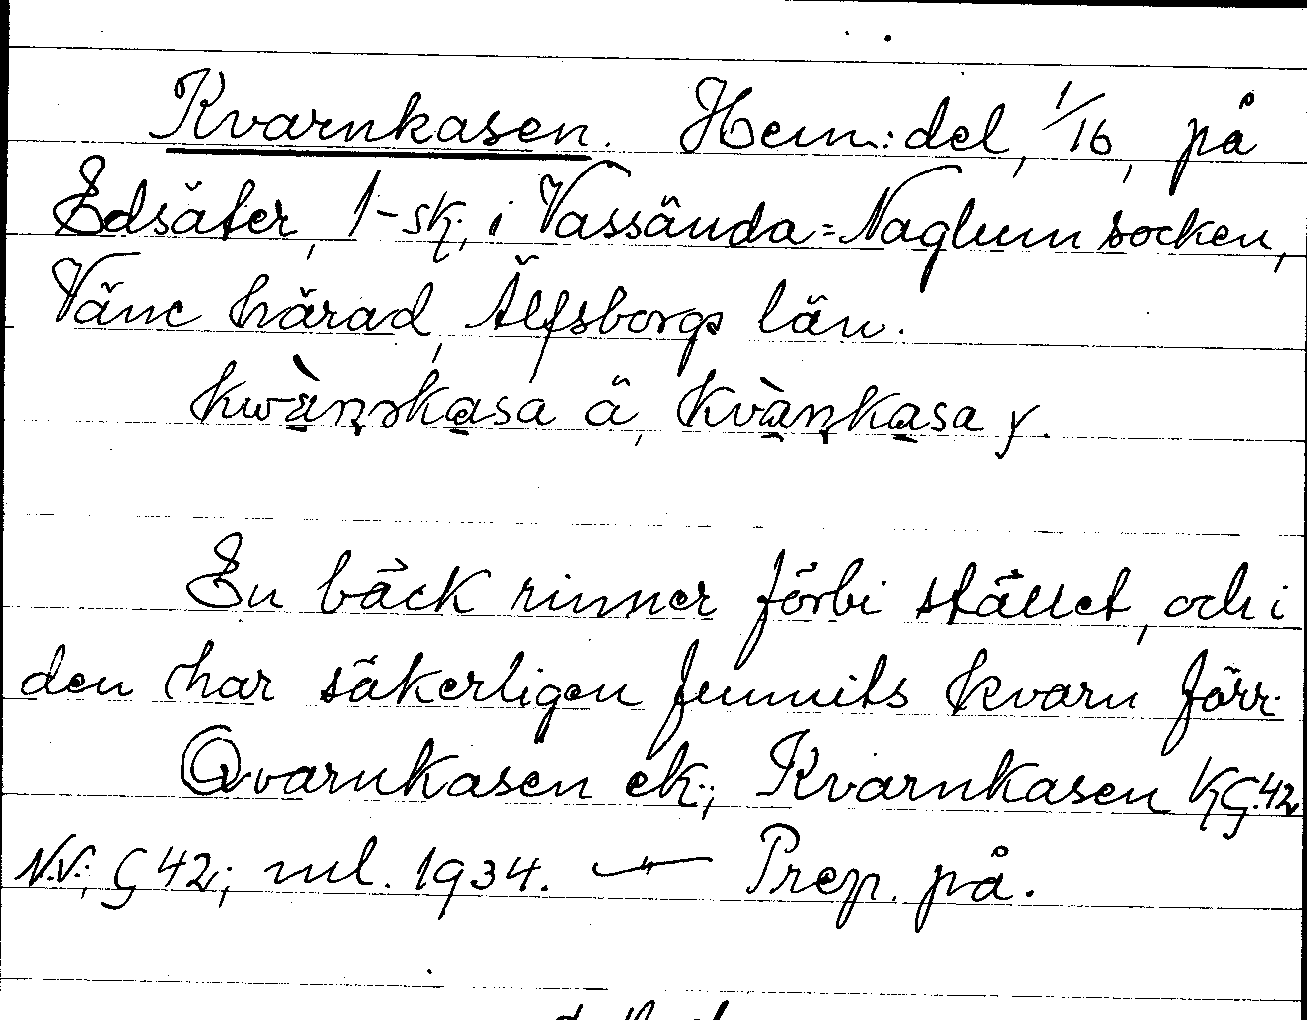 Kvarnkasen. Hem:del, 1/16, på
Edsäter, 1-sk, i Vassända=Naglum socken,
Väne härad, Älfsborgs län.
kwàṇkasa ä, kvàṇkasa y.
En bäck rinner förbi stället, och i
den har säkerligen funnits kvarn förr.
Qvarnkasen ek.; Kvarnkasen
N.V.; G 42; ml. 1934. — Prep. på.